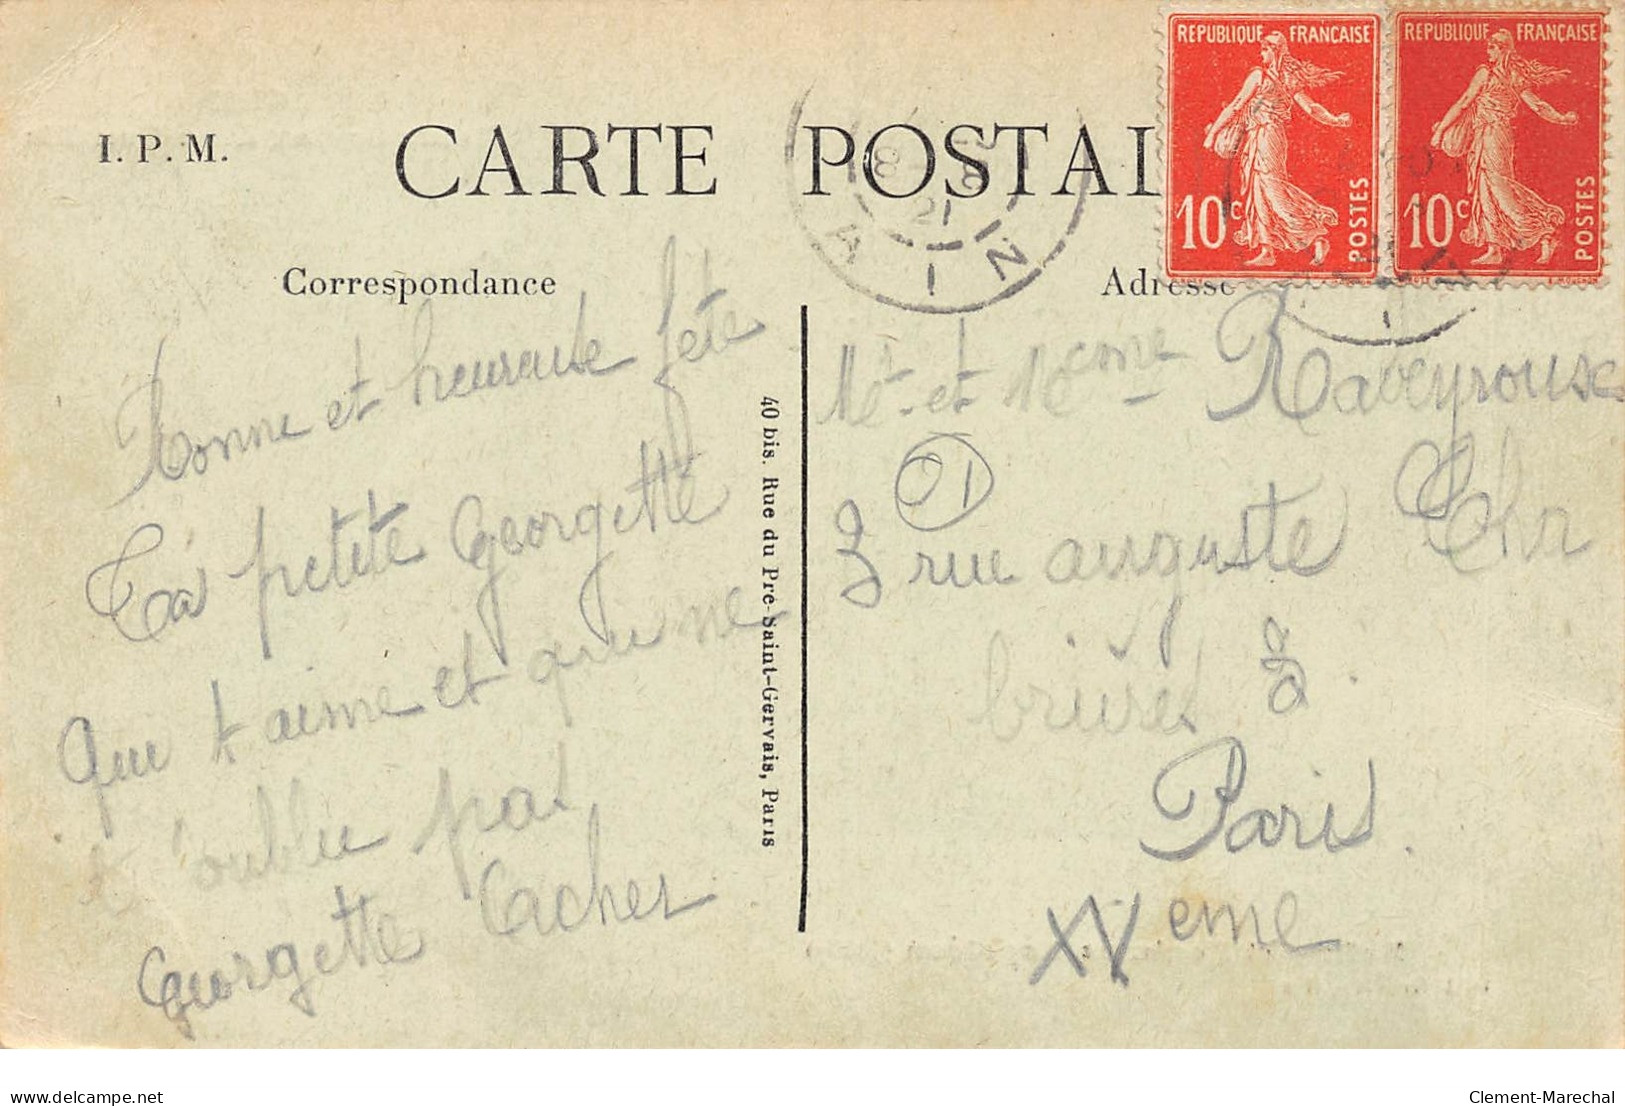 I. P. M.
CARTE POSTAL
Correspondance
Adresse
REPUBLIQUE FRANÇAISE
10c POSTES
REPUBLIQUE FRANÇAISE
10c POSTES
AIN
21
Bonne et heureuse fête
Ta petite Georgette
que t aime et qui ne
t 'oublie pas
Georgette Cacher
40 bis. Rue du Pré-Saint-Gervais, Paris
Mr et Mme Rabeyrouse
01
3 rue auguste Cha
brieres
à
Paris.
XVeme
www.delcampe.net
Clement-Marechal